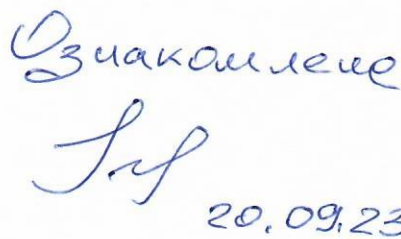 Ознакомлена
20.09.23